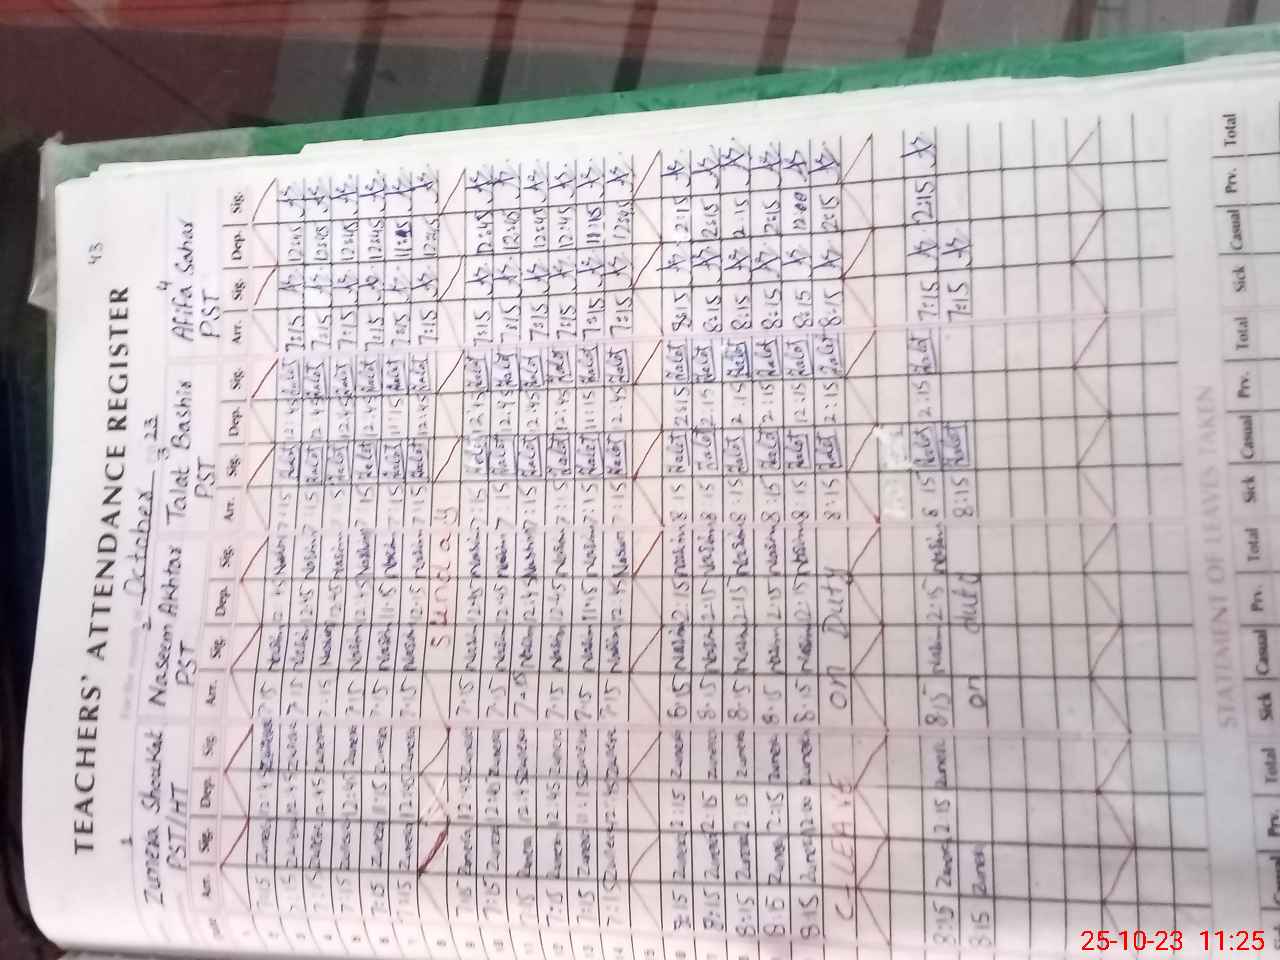 43
TEACHERS' ATTENDANCE REGISTER
For the month of October 23
1 2 3 4
Zunera Shaukat Naseem Akhtar Talat Bashir Atifa Sahar
PST/HT PST PST PST
Arr. Sig. Dep. Sig. Arr. Sig. Dep. Sig. Arr. Sig. Dep. Sig. Arr. Sig. Dep. Sig.
1
2 7:15 Zunera 12:45 Zunera 7:15 Nasim 12:45 Nasim 7:15 Talat 12:45 Talat 7:15 12:45
3 7:15 Zunera 12:45 Zunera 7:15 Nasim 12:45 Nasim 7:15 Talat 12:45 Talat 7:15 12:45
4 7:15 Zunera 12:45 Zunera 7:15 Nasim 12:45 Nasim 7:15 Talat 12:45 Talat 7:15 12:45
5 7:15 Zunera 12:45 Zunera 7:15 Nasim 12:45 Nasim 7:15 Talat 12:45 Talat 7:15 12:45
6 7:15 Zunera 11:15 Zunera 7:15 Nasim 11:15 Nasim 7:15 Talat 11:15 Talat 7:15 11:15
7 7:15 Zunera 12:45 Zunera 7:15 Nasim Nasim 7:15 Talat 12:45 Talat 7:15 12:45
8 Sunday
9 7:15 Zunera 12:45 Zunera 7:15 Nasim 12:45 Nasim 7:15 Talat 12:45 Talat 7:15 12:45
10 7:15 Zunera 12:45 Zunera 7:15 Nasim 12:45 Nasim 7:15 Talat 12:45 Talat 7:15 12:45
11 7:15 Zunera 12:45 Zunera 7:15 Nasim 12:45 Nasim 7:15 Talat 12:45 Talat 7:15 12:45
12 7:15 Zunera 12:45 Zunera 7:15 Nasim 12:45 Nasim 7:15 Talat 12:45 Talat 7:15 12:45
13 7:15 Zunera 11:15 Zunera 7:15 Nasim 11:15 Nasim 7:15 Talat 11:15 Talat 7:15 11:15
14 7:15 Zunera 12:45 Zunera 7:15 Nasim 12:45 Nasim 7:15 Talat 12:45 Talat 7:15 12:45
15
8:15 Zunera 2:15 Zunera 8:15 Nasim 2:15 Nasim 8:15 Talat 2:15 Talat 8:15 2:15
8:15 Zunera 2:15 Zunera 8:15 Nasim 2:15 Nasim 8:15 Talat 2:15 Talat 8:15 2:15
8:15 Zunera 2:15 Zunera 8:15 Nasim 2:15 Nasim 8:15 Talat 2:15 Talat 8:15 2:15
8:15 Zunera 2:15 Zunera 8:15 Nasim 2:15 Nasim 8:15 Talat 2:15 Talat 8:15 2:15
8:15 Zunera 12:00 Zunera 8:15 Nasim 12:15 Nasim 8:15 Talat 12:15 Talat 8:15 12:00
C-LEAVE on Duty 8:15 Talat 2:15 Talat 8:15 2:15
8:15 Zunera 2:15 Zunera 8:15 Nasim 2:15 Nasim 8:15 Talat 2:15 Talat 7:15 2:15
8:15 Zunera on duty 8:15 Talat 7:15
STATEMENT OF LEAVES TAKEN
Casual Prv. Total Sick Casual Prv. Total Sick Casual Prv. Total Sick Casual Prv. Total
25-10-23 11:25